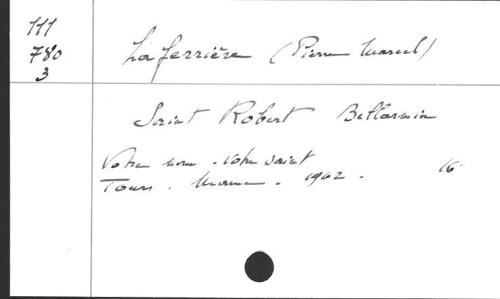 111
780
3
Laferrière (Pierre Marcel)
Saint Robert Bellarmin
Votre nom . votre saint
Tours . Mame . 1962 . 16